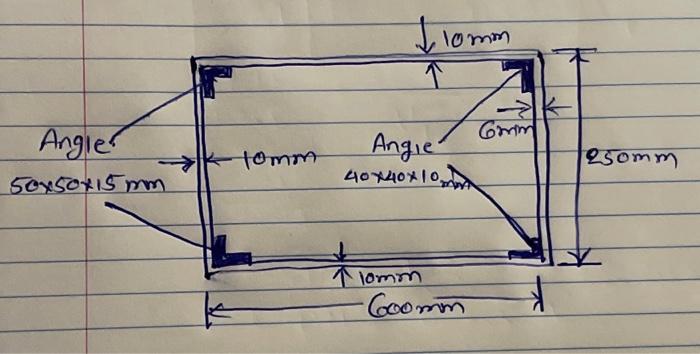 10mm
6mm
Angle
50x50x15mm
10mm
Angle
40x40x10mm
250mm
10mm
600mm